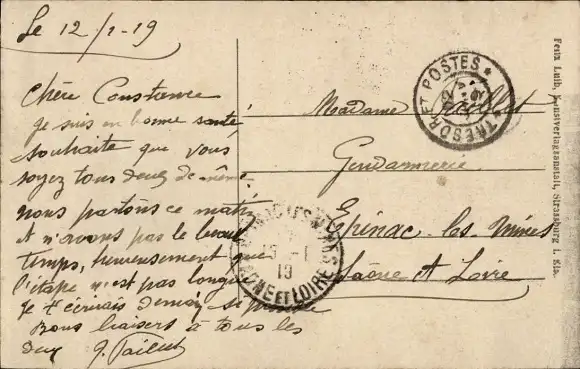 Le 12/1-19
Chère Constance
je suis en bonne santé
souhaite que vous
soyez tous deux de même
nous partons ce matin
et n'avons pas le beau
temps, heureusement que
l'étape n'est pas longue
je t'écrirais demain si
Bons baisers à tous les
deux
Madame
Gendarmerie
Epinac-les-Mines
Saône et Loire
TRESOR ET POSTES
EPINAC LES MINES
SAONE ET LOIRE
19
Felix Luib, Kunstverlagsanstalt, Strassburg i. Els.